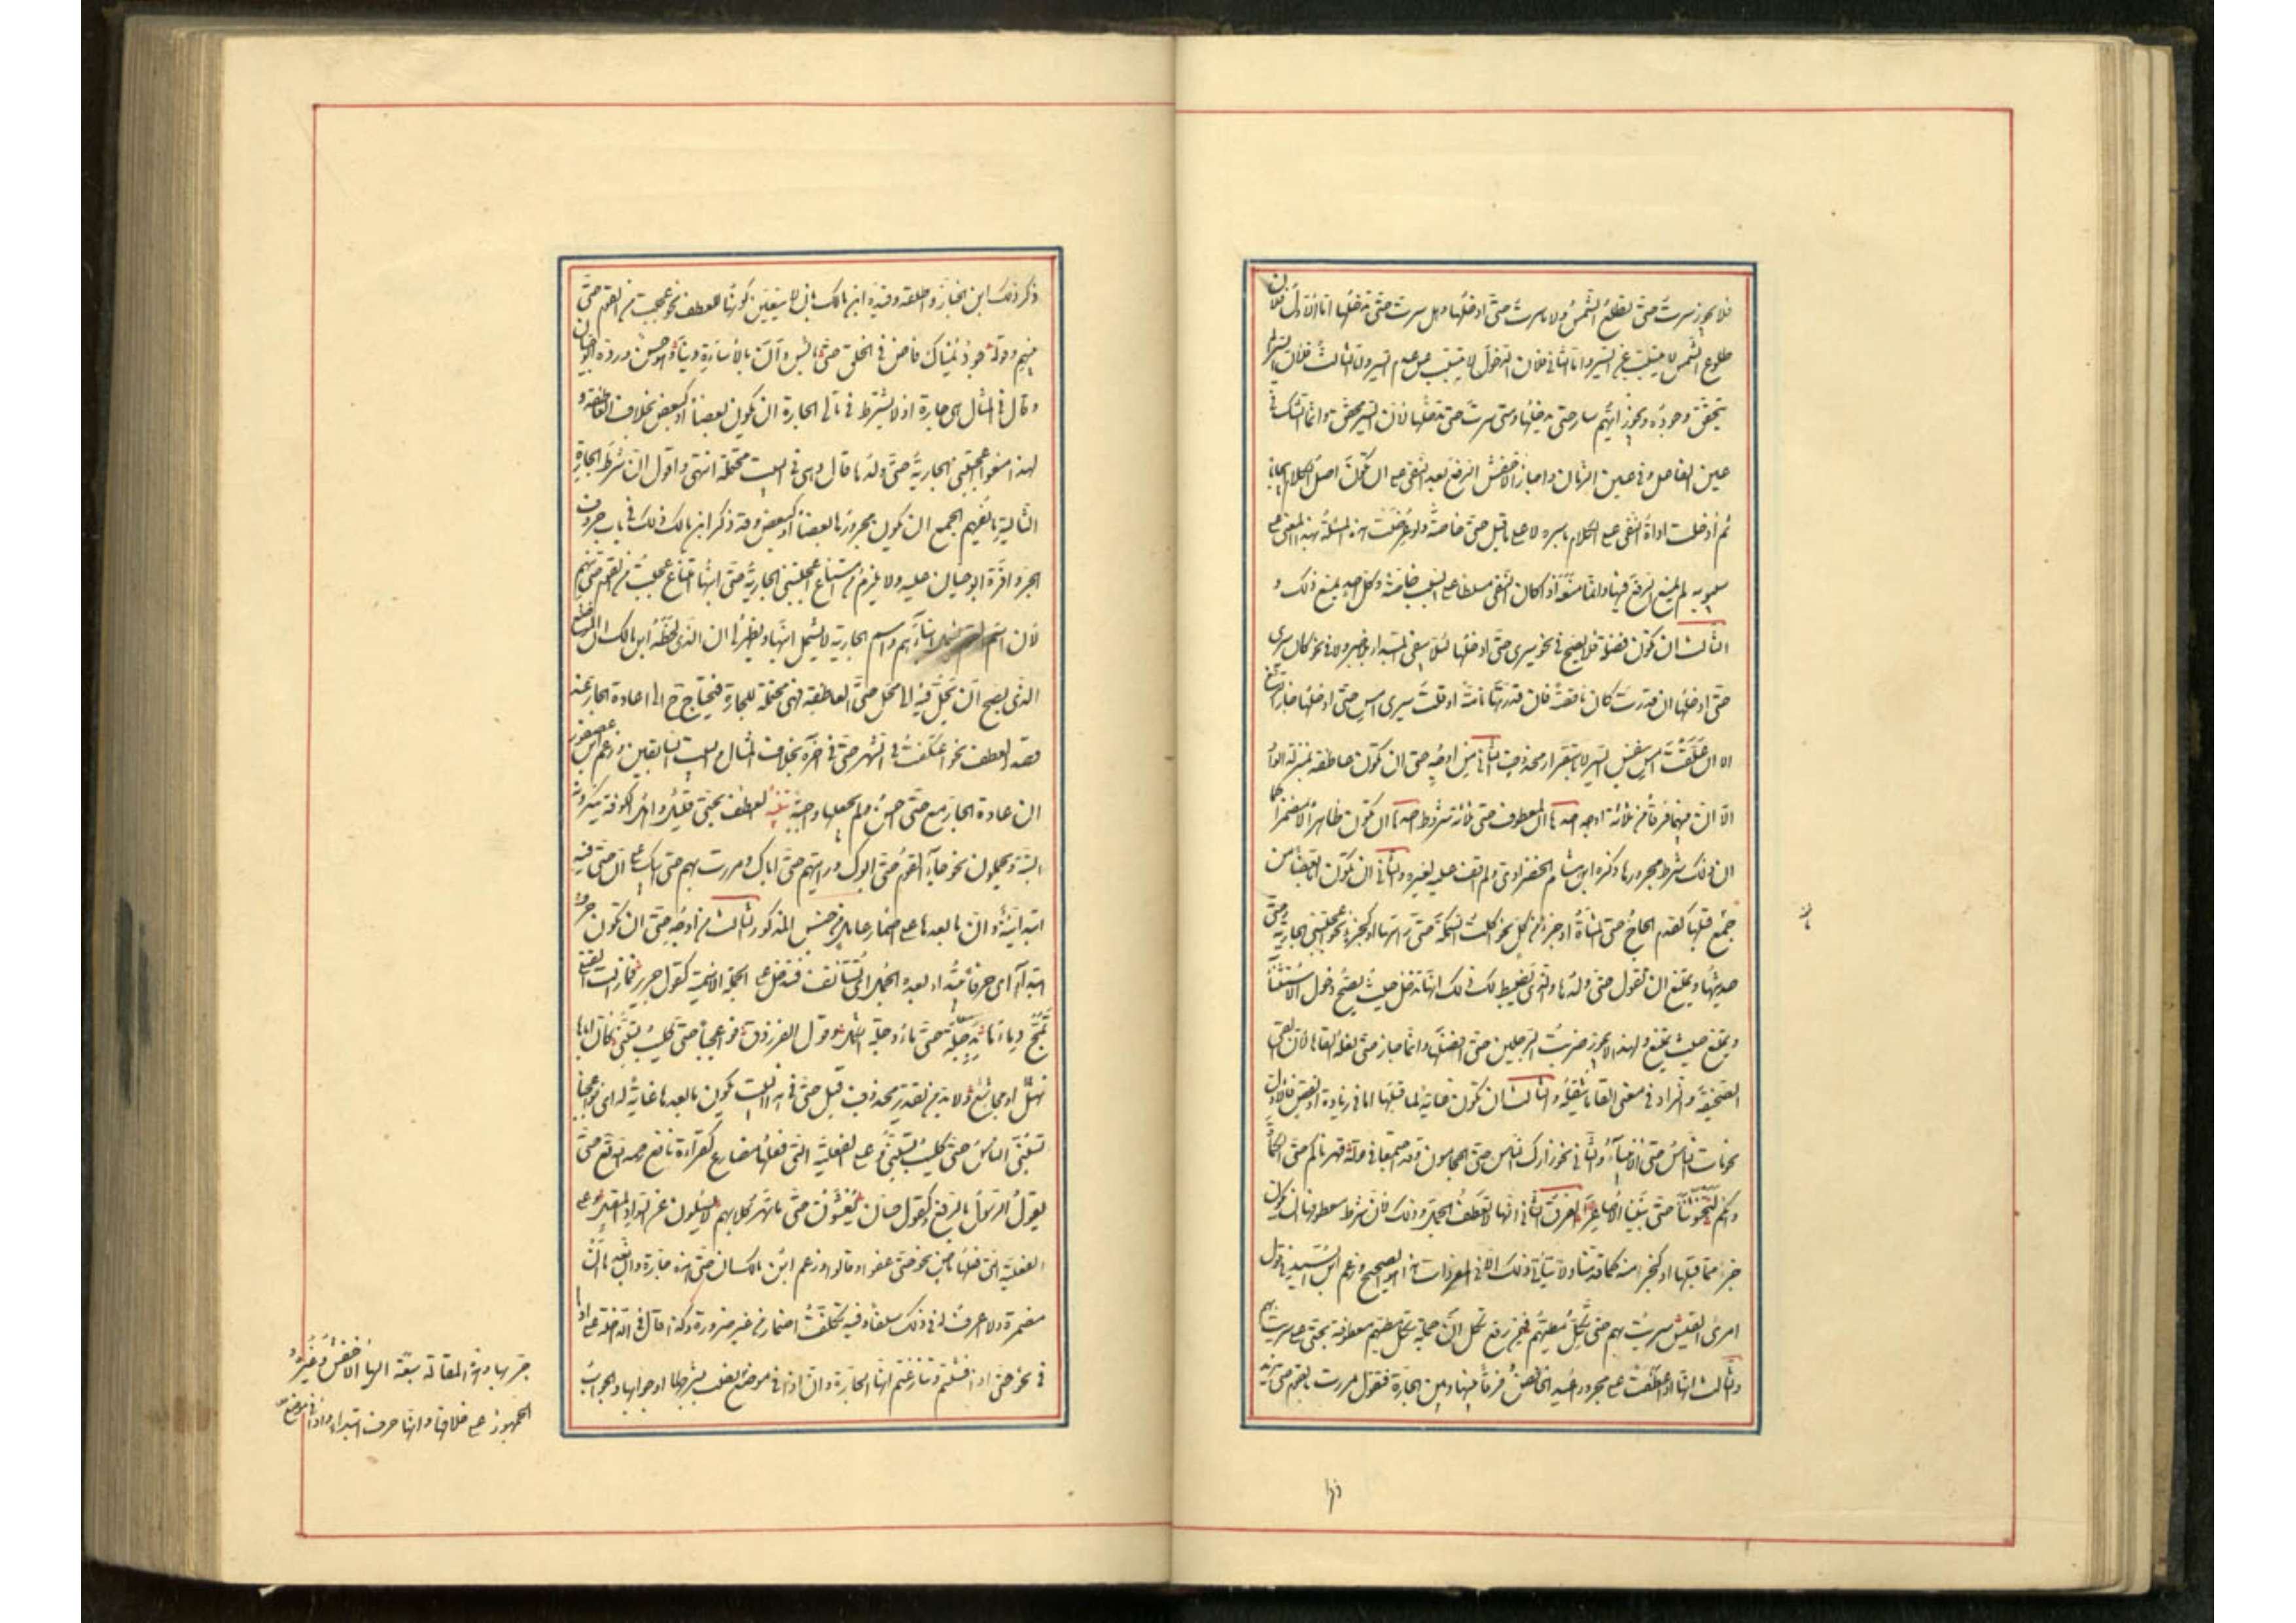 فلا يجوز سرت حتى تطلع الشمس ولا ما سرت حتى ادخلها وهل سرت حتى تدخلها اما الاول فلان
طلوع الشمس لا يتسبب عن السير واما الثانى فلان الدخول لا يتسبب عن عدم السير واما الثالث فلان السبب لم
يتحقق وجوده ويجوز ايهم سار حتى يدخلها ومتى سرت حتى تدخلها لان السير محقق وانما الشك فى
عين الفاعل وفى عين الزمان واجاز الاخفش الرفع بعد النفى على ان يكون اصل الكلام ايجابا
ثم أدخلت اداة النفى على الكلام باسره لا على ما قبل حتى خاصة ولو عرضت هذه المسئلة بهذا المعنى على
سيبويه لم يمنع الرفع فيها وانما منعه اذا كان النفى مسلطا على السبب خاصة وكل احد يمنع ذلك و
الثالث ان تكون فضلة فلا يصح فى نحو سيرى حتى ادخلها لئلا يبقى المبتدا بلا خبر ولا فى نحو كان سيرى
حتى ادخلها ان قدرت كان ناقصة فان قدرتها تامة او قلت سيرى امس حتى ادخلها جاز الرفع
الا ان علقت امس بنفس السير لا باستقرار محذوف الثانى من اوجه حتى ان تكون عاطفة بمنزلة الواو
الا ان بينهما فرقا من ثلاثة اوجه احدها ان لمعطوف حتى ثلاثة شروط احدها ان يكون ظاهرا لا مضمرا كما
ان ذلك شرط مجرورها ذكره ابن هشام الخضراوى ولم اقف عليه لغيره والثانى ان يكون اما بعضا من
جمع قبلها كقدم الحاج حتى المشاة او جزءا من كل نحو اكلت السمكة حتى راسها او كجزء نحو اعجبتنى الجارية حتى
حديثها ويمتنع ان تقول حتى ولدها والذى يضبط لك ذلك انها تدخل حيث يصح دخول الاستثناء
ويمتنع حيث يمتنع ولهذا لا يجوز ضربت الرجلين حتى افضلهما وانما جاز حتى نعله القاها لان القى
الصحيفة والزاد فى معنى القى ما يثقله والثالث ان تكون غاية لما قبلها اما فى زيادة او نقص فالاول
نحو مات الناس حتى الانبياء والثانى نحو زارك الناس حتى الحجامون وقد اجتمعا فى قوله قهرناكم حتى الكماة
وانكم لتخشوننا حتى بنينا الاصاغرا الفرق الثانى انها لا تعطف الجمل وذلك لان شرط معطوفها ان يكون
جزءا مما قبلها او كجزء منه كما قدمناه ولا يتأتى ذلك الا فى المفردات هذا هو الصحيح وزعم ابن السيد فى قول
امرئ القيس سريت بهم حتى تكل مطيهم فيمن رفع تكل ان جملة تكل مطيهم معطوفة بحتى على سريت بهم
والثالث انها اذا عطفت على مجرور اعيد الخافض فرقا بينها وبين الجارة فتقول مررت بالقوم حتى بزيد
ذكر ذلك ابن الخباز واطلقه وقيده ابن مالك بان لا يتعين كونها للعطف نحو عجبت من القوم حتى
بنيهم وقوله جود يمناك فاض فى الخلق حتى بائس دان بالاساءة دينا وهو حسن ورده ابو حيان
وقال فى المثال هى جارة اذ لا يشترط فى تالى الجارة ان يكون بعضا او كبعض بخلاف العاطفة و
لهذا منعوا اعجبتنى الجارية حتى ولدها قال وهى فى البيت محتملة انتهى واقول ان شرط الجارة
التالية ما يفهم الجمع ان يكون مجرورها بعضا او كبعض وقد ذكر ابن مالك ذلك فى باب حروف
الجر واقره ابو حيان عليه ولا يلزم من امتناع اعجبتنى الجارية حتى ابنها امتناع عجبت من القوم حتى بنيهم
لان اسم القوم يشمل ابناءهم واسم الجارية لا يشمل ابنها ويظهر لى ان الذى لحظه ابن مالك ان الموضع
الذى يصح ان تحل فيه الى محل حتى العاطفة فهى محتملة للجارة فيحتاج ح الى اعادة الجار عند
قصد العطف نحو اعتكفت فى الشهر حتى فى اخره بخلاف المثال والبيت السابقين وزعم ابن عصفور
ان اعادة الجار مع حتى احسن ولم يجعلها واجبة تنبيه العطف بحتى قليل واهل الكوفة ينكرونه
البتة ويحملون نحو جاء القوم حتى ابوك ورايتهم حتى اباك ومررت بهم حتى ابيك على ان حتى فيه
ابتدائية وان ما بعدها على اضمار عامل من جنس المذكور الثالث من اوجه حتى ان تكون حرف
ابتداء اى حرفا تبتدء بعده الجمل اى تستانف فتدخل على الجملة الاسمية كقول جرير فما زالت القتلى
تمج دماءها بدجلة حتى ماء دجلة اشكل وقول الفرزدق فواعجبا حتى كليب تسبنى كان اباها
نهشل او مجاشع ولا بد من تقدير محذوف قبل حتى فى هذا البيت يكون ما بعدها غاية له اى فواعجبا
تسبنى الناس حتى كليب تسبنى وعلى الفعلية التى فعلها مضارع كقراءة نافع رحمه الله تع حتى
يقول الرسول بالرفع وكقول حسان يغشون حتى ما تهر كلابهم لا يسئلون عن السواد المقبل وعلى
الفعلية التى فعلها ماض نحو حتى عفوا وقالوا وزعم ابن مالك ان حتى هذه جارة وان بعدها ان
مضمرة ولا اعرف له فى ذلك سلفا وفيه تكلف اضمار من غير ضرورة وكذا قال فى الداخلة على اذا
فى نحو حتى اذا فشلتم وتنازعتم انها الجارة وان اذا فى موضع جر بها وهذه المقالة سبقه اليها الاخفش وغيره و
الجمهور على خلافها وانها حرف ابتداء وان اذا فى موضع نصب بشرطها او جوابها والجواب